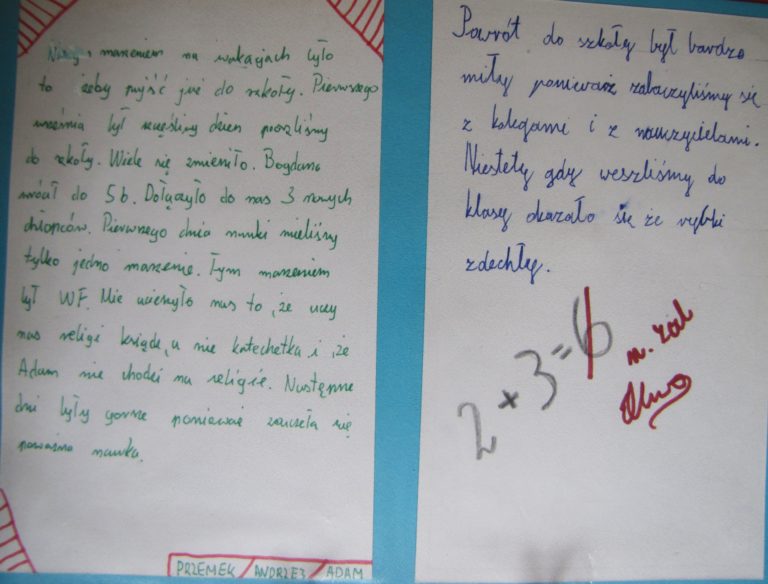 Naszym marzeniem na wakacjach było
to żeby pujść już do szkoły. Pierwszego
września był szczęśliwy dzien poszliśmy
do szkoły. Wiele się zmieniło. Bogdano
wrócił do 5b. Dołączyło do nas 3 nowych
chłopców. Pierwszego dnia nauki mieliśmy
tylko jedno marzenie. Tym marzeniem
był WF. Nie ucieszyło nas to, że uczy
nas religi ksiądz, a nie katechetka i, że
Adam nie chodzi na religie. Następne
dni były gorsze poniewaź zaczeła się
poważna nauka.
PRZEMEK / ANDRZEJ / ADAM
Powrót do szkoły był bardzo
miły ponieważ zobaczyliśmy się
z kolegami i z nauczycielami.
Niestety gdy weszliśmy do
klasy okazało się że rybki
zdechły.
2 * 3 = 6